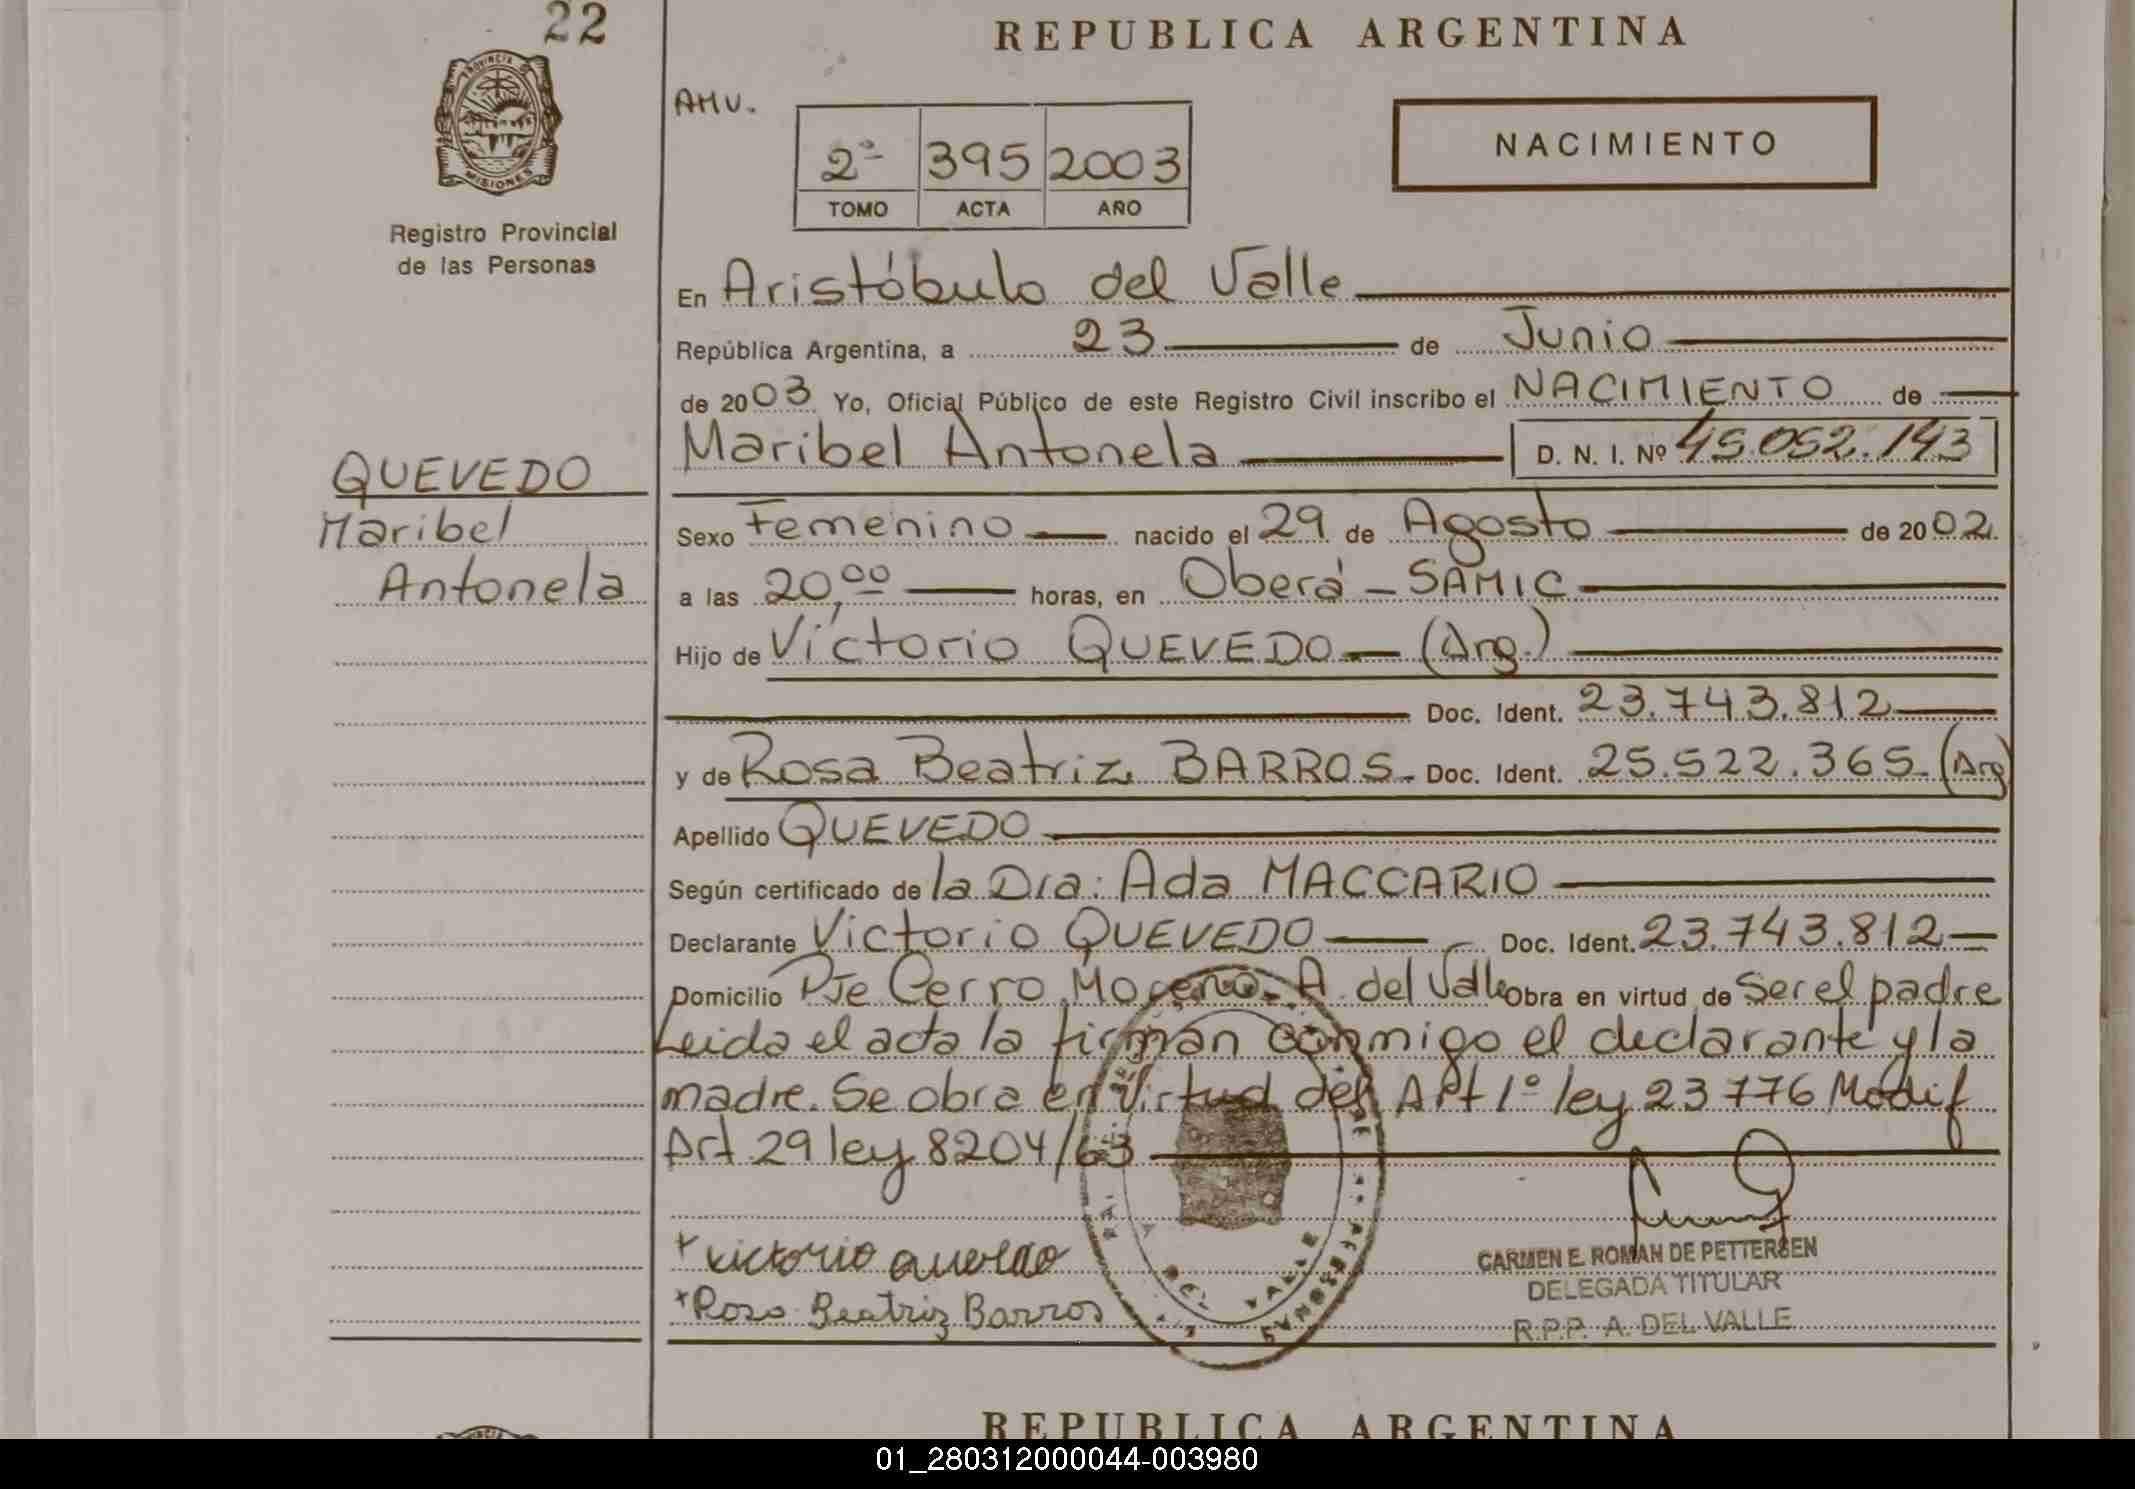 22
REPUBLICA ARGENTINA
PROVINCIA DE
MISIONES
Registro Provincial
de las Personas
AMU.
2º 395 2003
TOMO ACTA AÑO
NACIMIENTO
En Aristóbulo del Valle
República Argentina, a 23 de Junio
de 2003 Yo, Oficial Público de este Registro Civil inscribo el NACIMIENTO de
QUEVEDO
Maribel
Antonela
Maribel Antonela D. N. I. Nº 45.052.143
Sexo Femenino nacido el 29 de Agosto de 2002.
a las 20,00 horas, en Oberá - SAMIC
Hijo de Victorio QUEVEDO (Arg.)
Doc. Ident. 23.743.812
y de Rosa Beatriz BARROS. Doc. Ident. 25.522.365. (Arg)
Apellido QUEVEDO
Según certificado de la Dra: Ada MACCARIO
Declarante Victorio QUEVEDO Doc. Ident. 23.743.812
Domicilio Pje Cerro Moreno. A. del Valle Obra en virtud de Ser el padre
Leida el acta la firman conmigo el declarante y la
madre. Se obra en Virtud del Art 1º ley 23776 Modif
Art 29 ley 8204/63
+ victorio quevedo
+ Rosa Beatriz Barros
DEL VALLE
CARMEN E. ROMAN DE PETTERSEN
DELEGADA TITULAR
R.P.P. A. DEL VALLE
REPUBLICA ARGENTINA
01_280312000044-003980